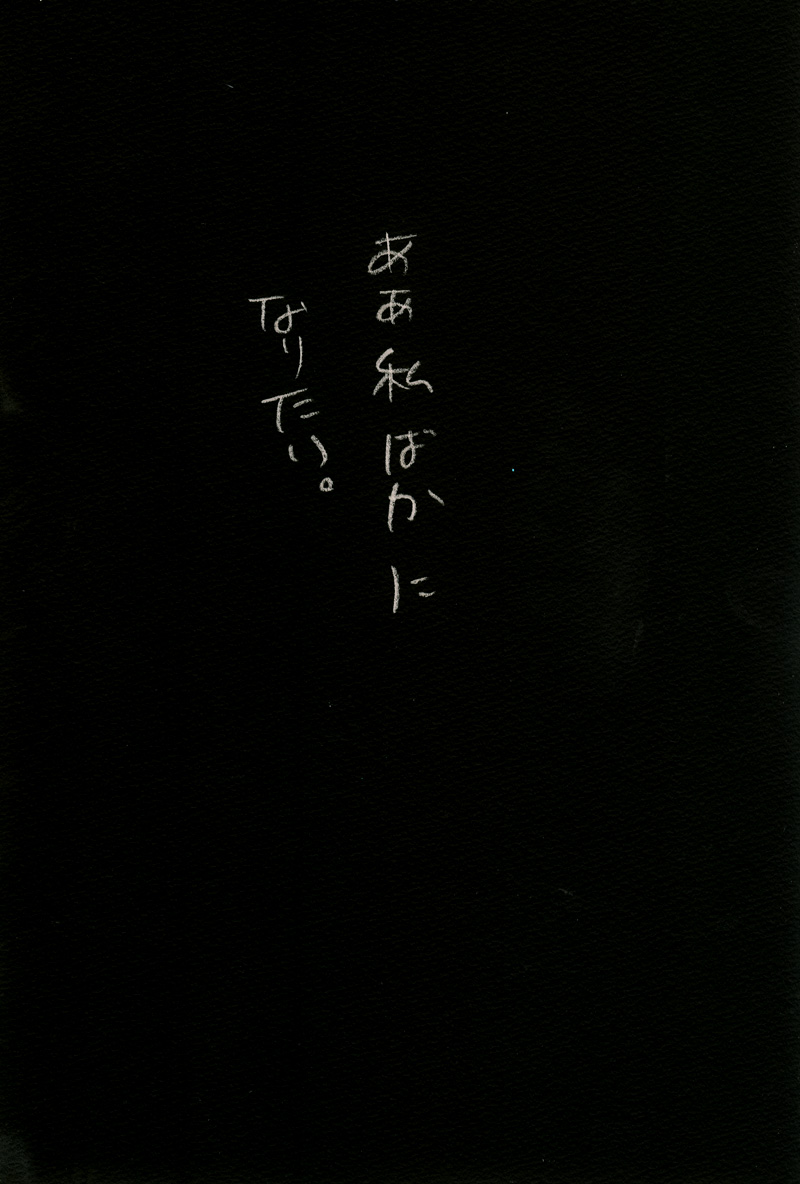 ああ私ばかに
なりたい。